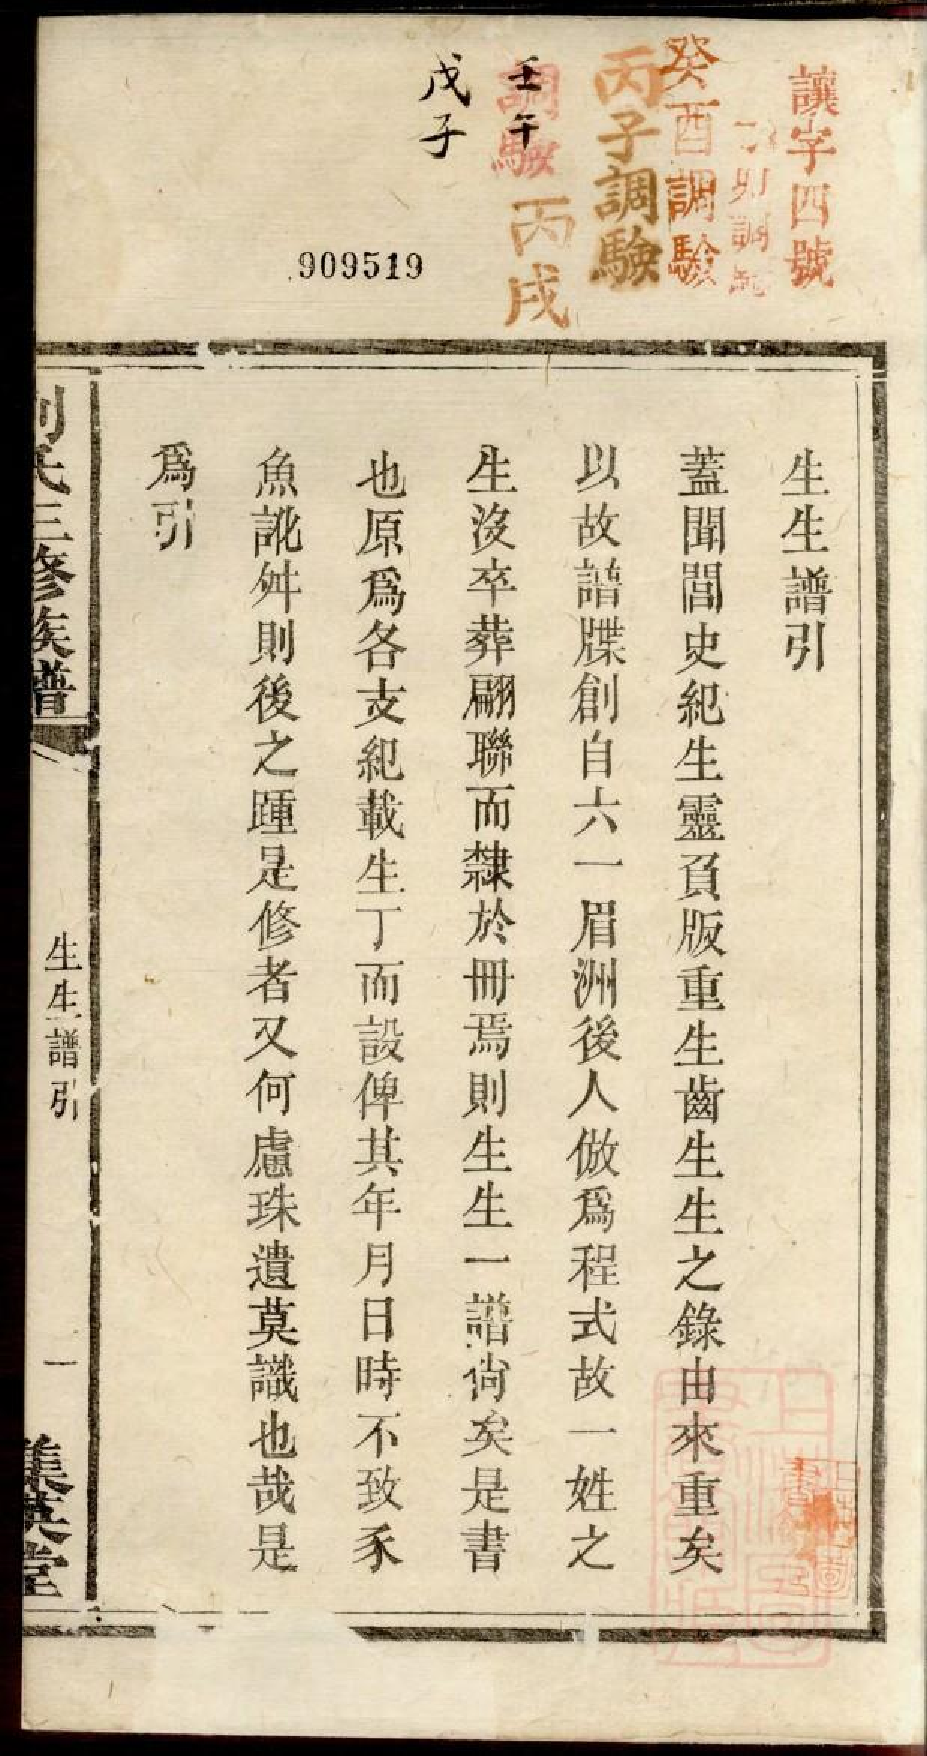 讓字四號
卯調
癸酉調驗
丙子調驗
調驗
丙戌
壬午
戊子
909519
生生譜引
蓋聞閭史紀生靈頁版重生齒生生之錄由來重矣
以故譜牒創自六一眉洲後人倣爲程式故一姓之
生沒卒葬翩聯而隸於冊焉則生生一譜尚矣是書
也原爲各支紀載生丁而設俾其年月日時不致豕
魚訛舛則後之踵是修者又何慮珠遺莫識也哉是
爲引
劉氏三修族譜
生生譜引
一
集英堂